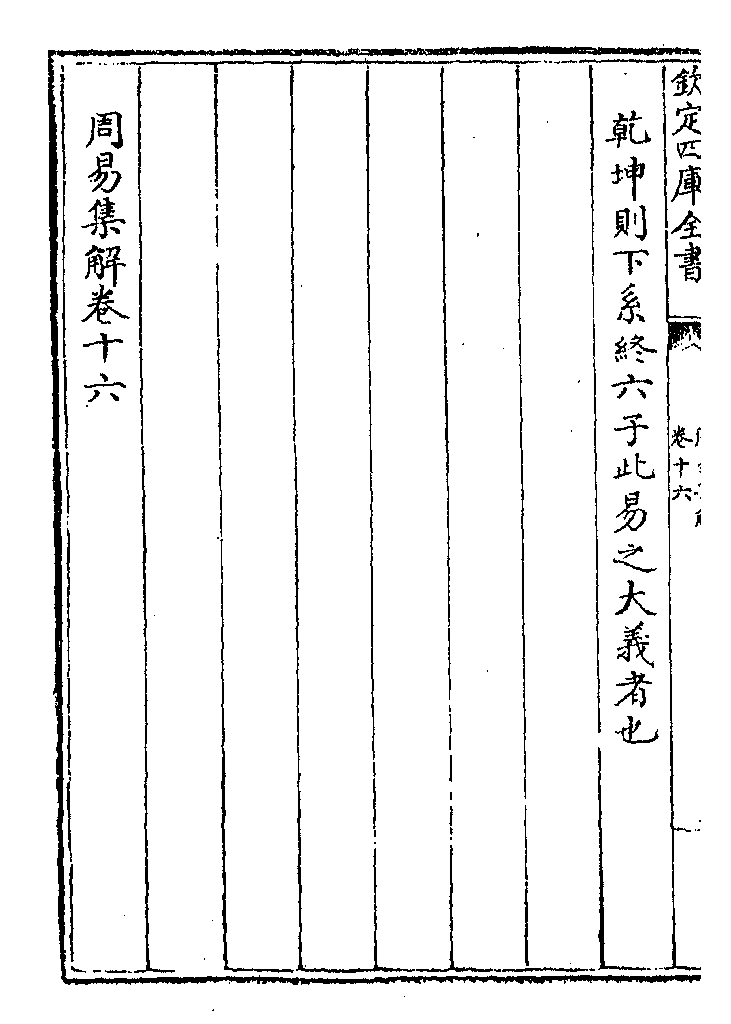 欽定四庫全書
卷十六
乾坤則下系終六子此易之大義者也
周易集解卷十六